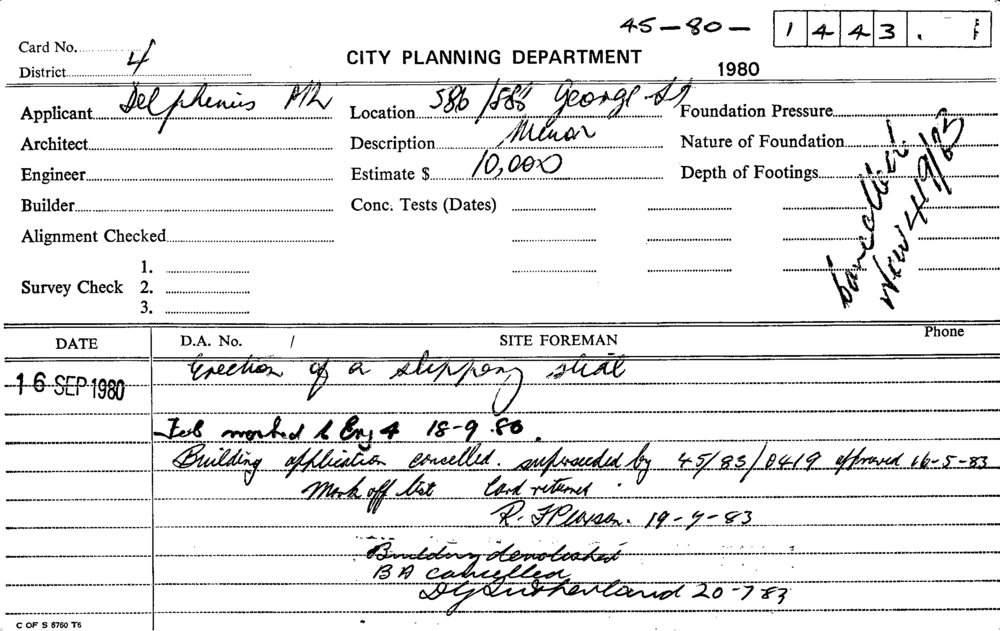 45-80- 1443.
Card No. 4
District
CITY PLANNING DEPARTMENT
1980
Applicant Delphenius P/L Location 586/588 George St Foundation Pressure
Architect Description Minor Nature of Foundation
Engineer Estimate $ 10,000 Depth of Footings
Builder Conc. Tests (Dates)
Alignment Checked
Cancelled
1.
Survey Check 2.
3.
DATE D.A. No. / SITE FOREMAN Phone
Erection of a slippery slide
16 SEP 1980
marked to Eng 4 18-9-80.
Building application cancelled. superseeded by 45/83/0419 approved 16-5-83
Mark off list Card returned
R. F Pearson. 19-7-83
Building demolished
BA cancelled
DG Sutherland 20-7-83
C OF S 6760 T6